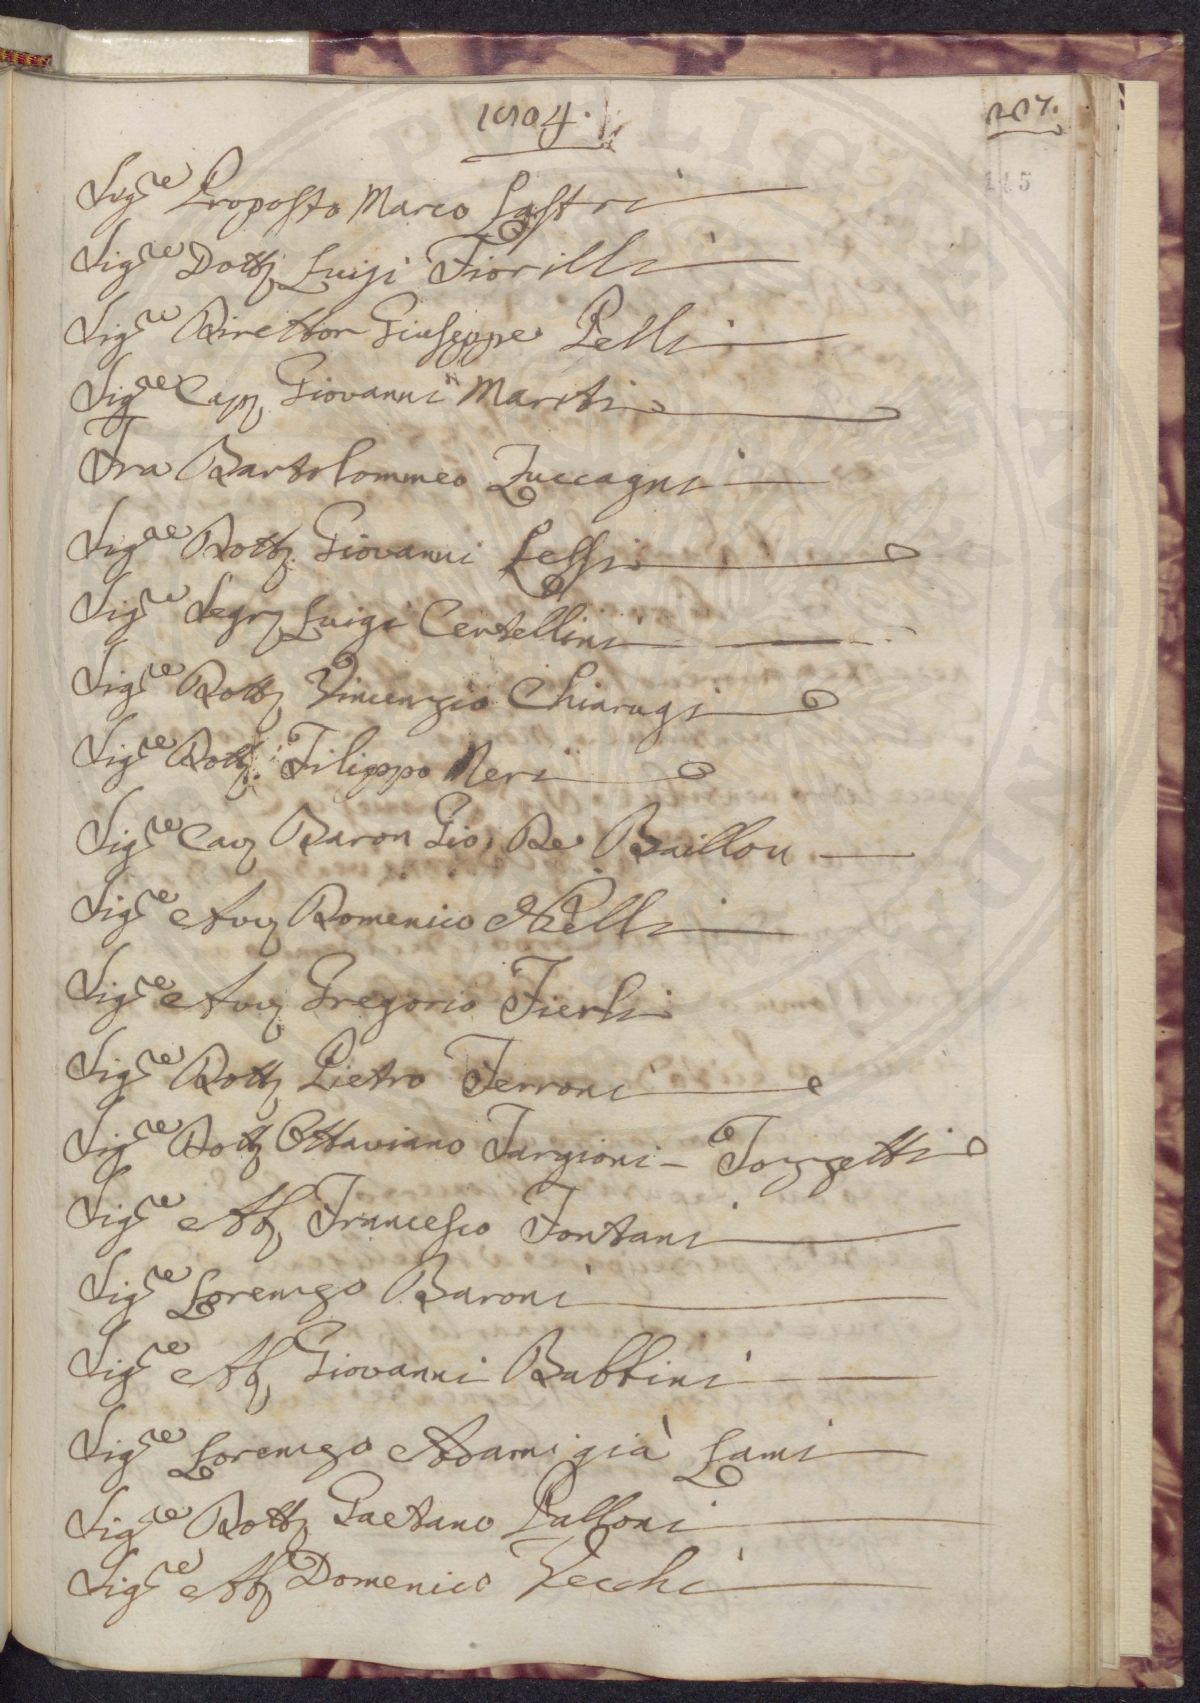 1804.
227.
115
Sig.re Proposto Marco Lastri
Sig.re Dott. Luigi Fiorilli
Sig.re Direttor Giuseppe Pelli
Sig.re Cap. Giovanni Mariti
Fra Bartolommeo Zuccagni
Sig.re Dott. Giovanni Lessi
Sig.re Segr. Luigi Certellini
Sig.re Dott. Vincenzio Chiarugi
Sig.re Dott. Filippo Neri
Sig.re Cav. Baron Gio. De Baillou
Sig.re Avv. Domenico Nelli
Sig.re Avv. Gregorio Fierli
Sig.re Dott. Pietro Ferroni
Sig.re Dott. Ottaviano Targioni - Tozzetti
Sig.re Ab. Francesco Fontani
Sig.re Lorenzo Baroni
Sig.re Ab. Giovanni Babbini
Sig.re Lorenzo Adami già Lami
Sig.re Dott. Gaetano Palloni
Sig.re Ab. Domenico Vecchi